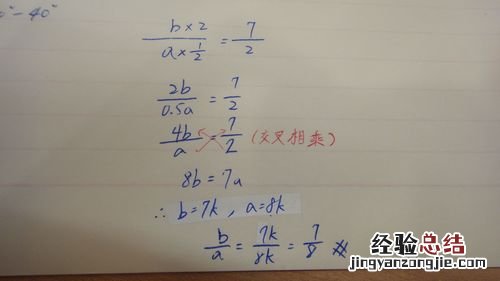 0°-40°
b×2 / a×1/2 = 7/2
2b/0.5a = 7/2
4b/a = 7/2 (交叉相乘)
8b=7a
∴ b=7k, a=8k
b/a = 7k/8k = 7/8 #
经验总结
jingyanzongjie.com